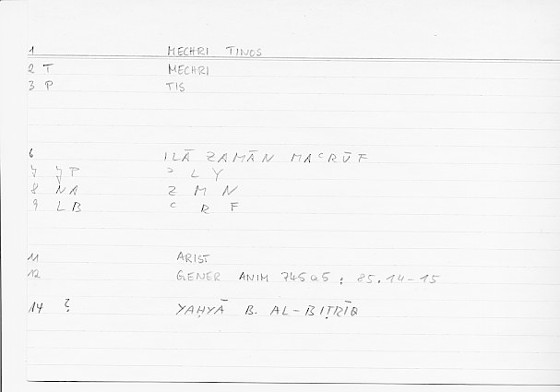 1 MECHRI TINOS
2 T MECHRI
3 P TIS
6 ILĀ ZAMĀN MAʿRŪF
7 YP ʾ L Y
8 NA Z M N
9 LB ʿ R F
11 ARIST
12 GENER ANIM 745a5 ; 85.14-15
14 ? YAḤYĀ B. AL-BIṬRĪQ